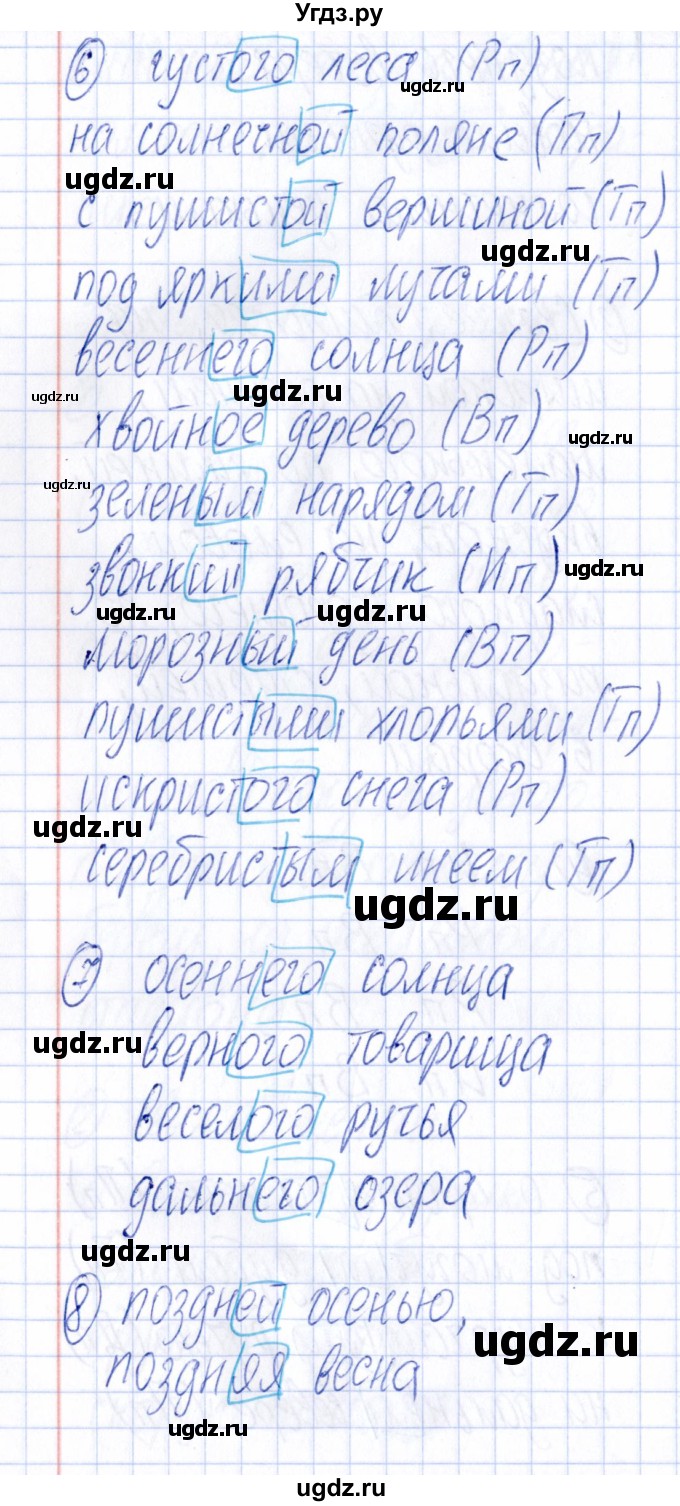 Угдз.ру
6 густого леса (Рп)
ugdz.ru
на солнечной поляне (Пп)
ugdz.ru
с пушистой вершиной (Тп)
ugdz.ru
под яркими лучами (Тп)
весеннего солнца (Рп)
ugdz.ru ugdz.ru
хвойное дерево (Вп)
ugdz.ru
ugdz.ru
зеленым нарядом (Тп)
звонкий рябчик (Ип)
ugdz.ru
ugdz.ru ugdz.ru
морозный день (Вп)
пушистыми хлопьями (Тп)
искристого снега (Рп)
ugdz.ru
серебристым инеем (Тп)
ugdz.ru
7 осеннего солнца
ugdz.ru
верного товарища
веселого ручья
дальнего озера
ugdz.ru
8 поздней осенью,
ugdz.ru
поздняя весна
ugdz.ru
ugdz.ru